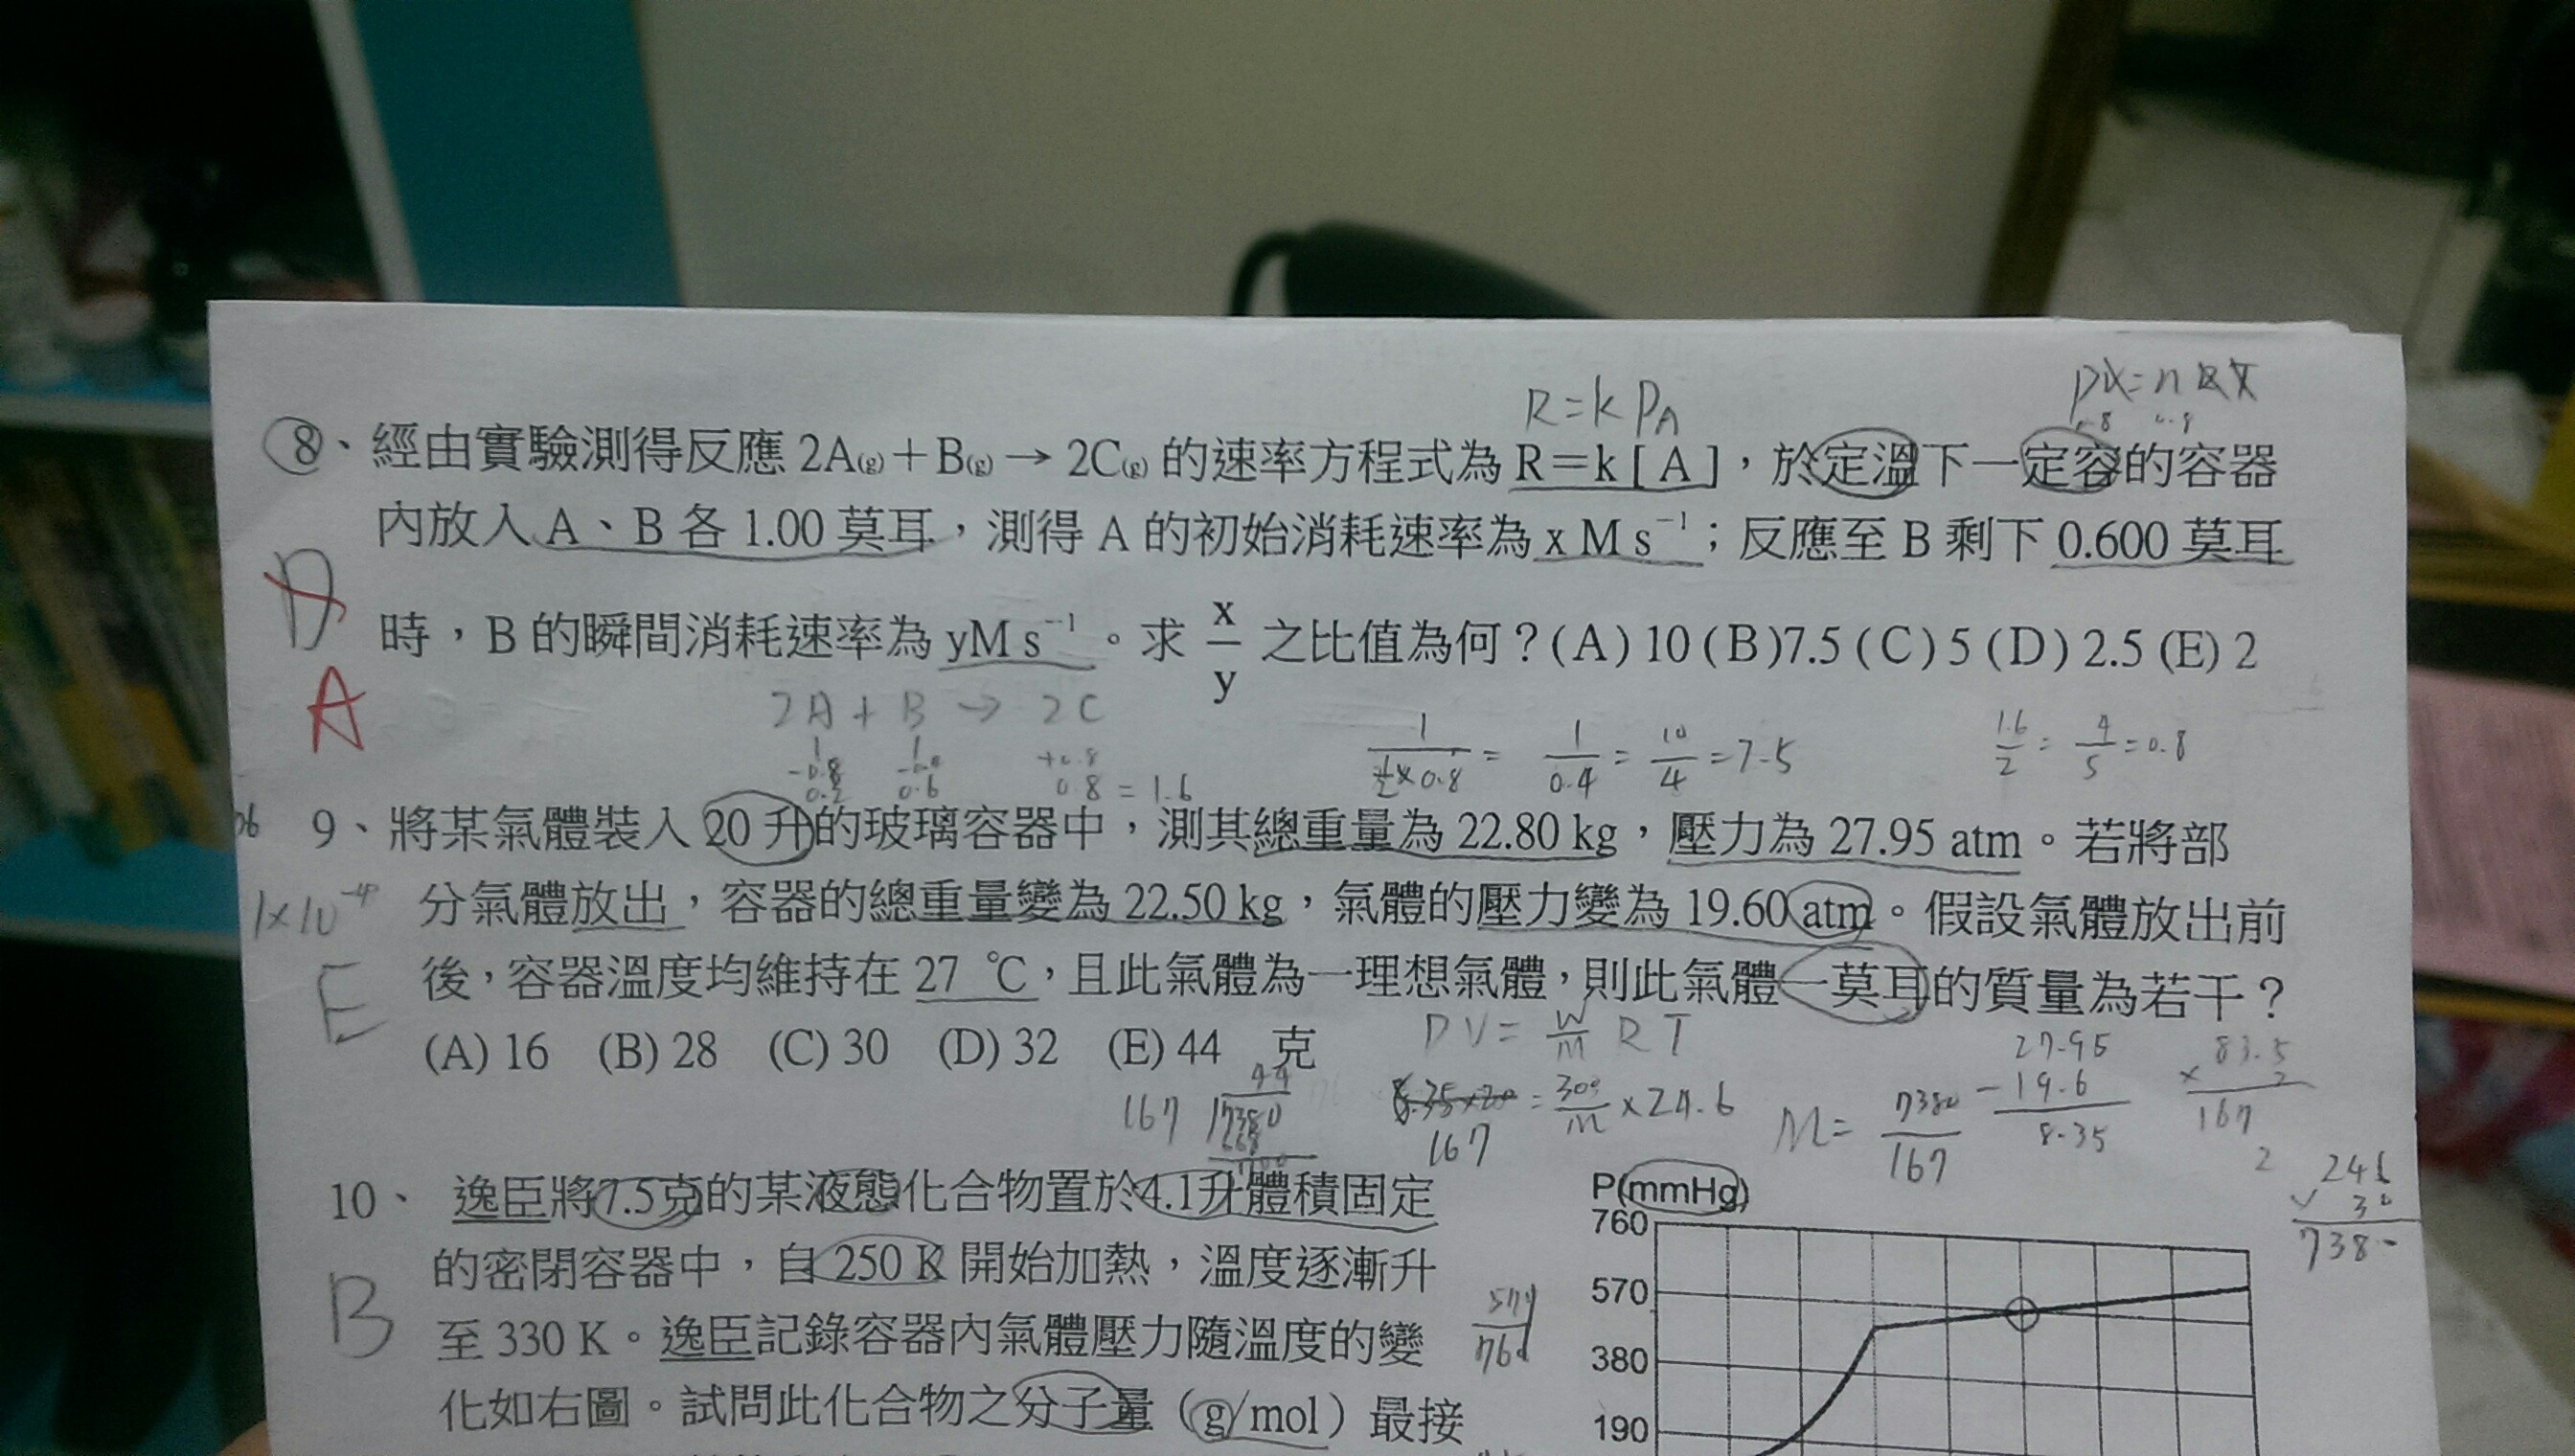 R=kPA
PV=nRT
8、經由實驗測得反應 2A(g)＋B(g)→ 2C(g) 的速率方程式為 R＝k [ A ]，於定溫下一定容的容器
內放入 A、B 各 1.00 莫耳，測得 A 的初始消耗速率為 x M s⁻¹；反應至 B 剩下 0.600 莫耳
D
時，B 的瞬間消耗速率為 yM s⁻¹。求 x/y 之比值為何？(A) 10 (B)7.5 (C) 5 (D) 2.5 (E) 2
A
2A + B → 2C
1 1
-0.8 +0.8
0.2 0.6 0.8 = 1.6
1/(½×0.8) = 1/0.4 = 10/4 = 7.5
1.6/2 = 4/5 = 0.8
06 9、將某氣體裝入 20 升的玻璃容器中，測其總重量為 22.80 kg，壓力為 27.95 atm。若將部
1×10⁻⁴ 分氣體放出，容器的總重量變為 22.50 kg，氣體的壓力變為 19.60 atm。假設氣體放出前
E 後，容器溫度均維持在 27 ℃，且此氣體為一理想氣體，則此氣體一莫耳的質量為若干？
(A) 16 (B) 28 (C) 30 (D) 32 (E) 44 克
PV = W/M RT
8.35×20 = 300/M × 24.6
167
M = 7380/167
27.95
-19.6
8.35
83.5
× 2
167
44
167 7380
668
2
246
× 30
7380
10、逸臣將7.5克的某液態化合物置於4.1升體積固定
的密閉容器中，自 250 K 開始加熱，溫度逐漸升
B 至 330 K。逸臣記錄容器內氣體壓力隨溫度的變
化如右圖。試問此化合物之分子量（g/mol）最接
570/760
P(mmHg)
760
570
380
190